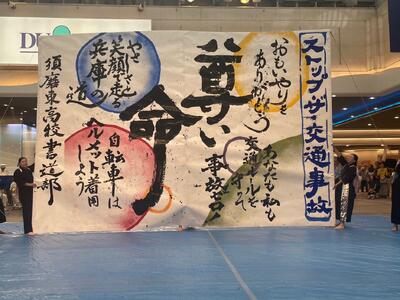 ストップ・ザ・交通事故
おもいやりと
ありがとう
あなたも私も
交通ルールを
守って
尊い
命
事故ゼロへ
やさしさと
笑顔で走る
兵庫の
道
自転車は
ヘルメット着用
しよう
須磨東高校書道部